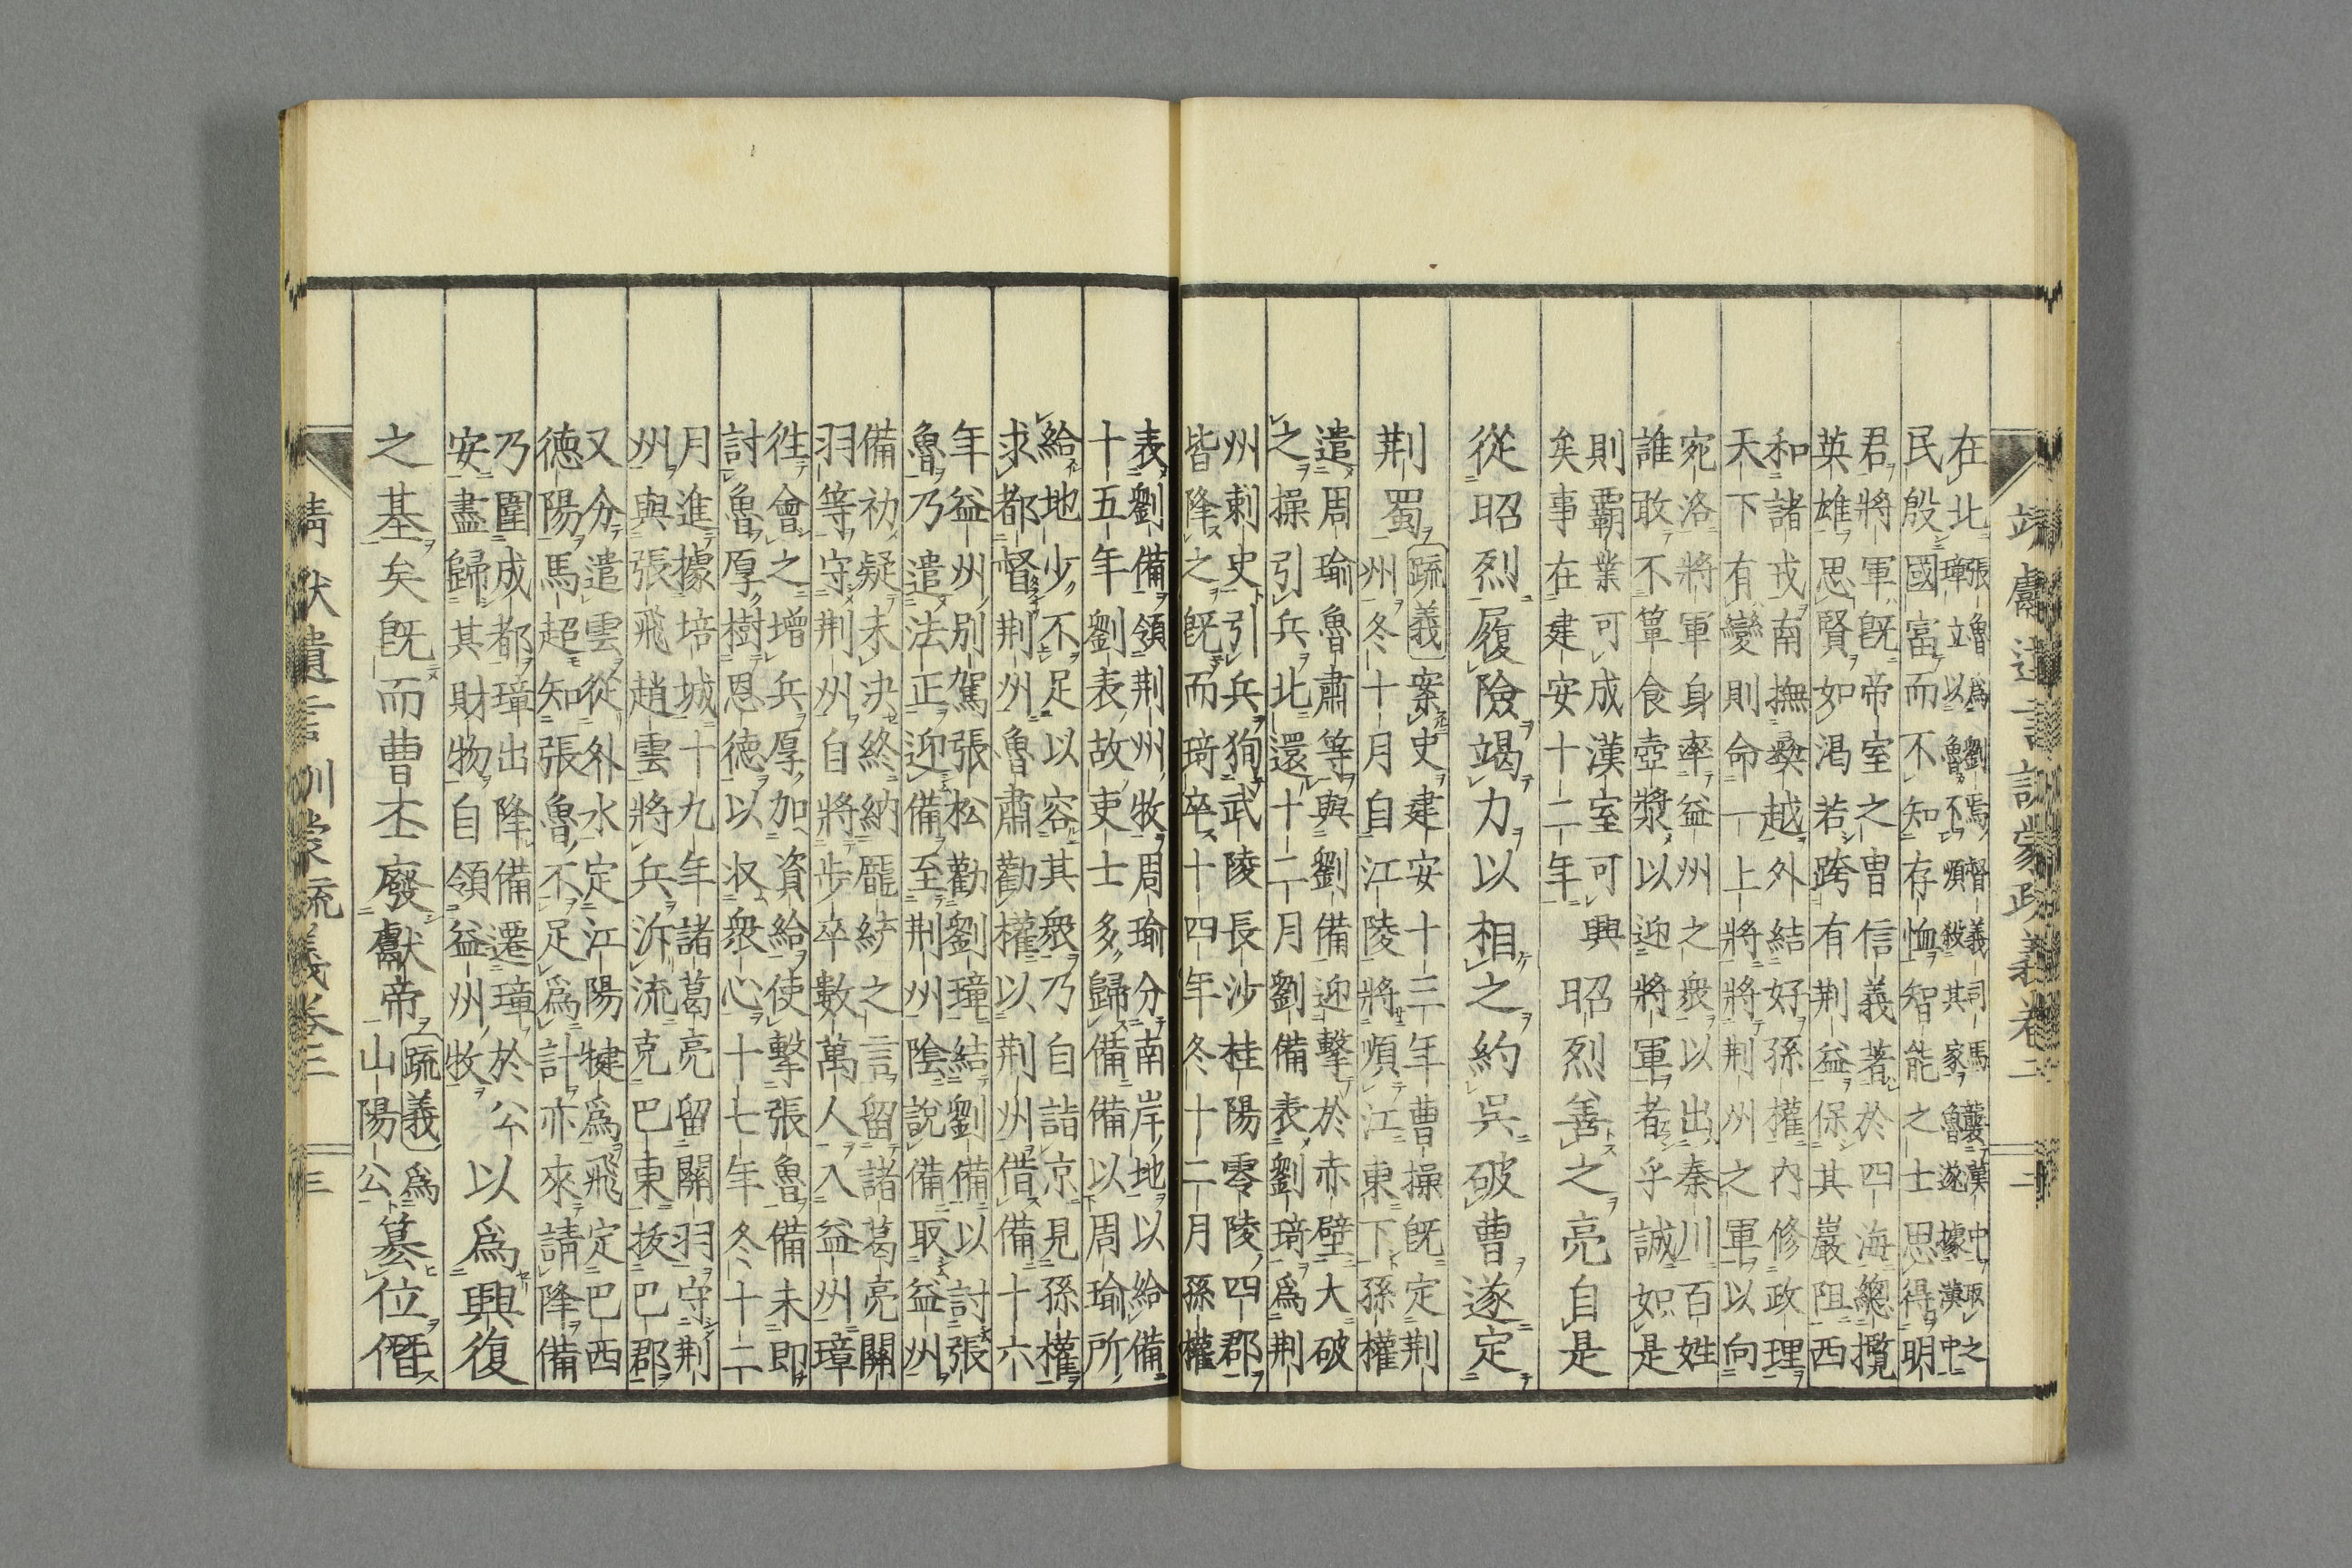 靖獻遺言訓蒙疏義卷三 二
在北張魯爲劉焉督義司馬襲漢中取之
璋立以魯不順殺其家魯遂據漢中
民殷國富而不知存恤智能之士思得明
君將軍既帝室之曹信義著於四海總攬
英雄思賢如渴若跨有荊益保其巖阻西
和諸戎南撫夷越外結好孫權内修政理
天下有變則命一上將將荊州之軍以向
宛洛將軍身率益州之衆以出秦川百姓
誰敢不簞食壺漿以迎將軍者乎誠如是
則霸業可成漢室可興
矣事在建安十二年
昭烈善之亮自是
從昭烈履險竭力以相之約吳破曹遂定
荊蜀疏義案史建安十三年曹操既定荊
州冬十月自江陵將順江東下孫權
遣周瑜魯肅等與劉備迎擊於赤壁大破
之操引兵北還十二月劉備表劉琦爲荊
州刺史引兵狥武陵長沙桂陽零陵四郡
皆降之既而琦卒十四年冬十二月孫權
表劉備領荊州牧周瑜分南岸地以給備
十五年劉表故吏士多歸備備以周瑜所
給地少不足以容其衆乃自詣京見孫權
求都督荊州魯肅勸權以荊州借備十六
年益州別駕張松勸劉璋結劉備以討張
魯乃遣法正迎備至荊州陰說備取益州
備初疑未決終納龐統之言留諸葛亮關
羽等守荊州自將步卒數萬人入益州璋
往會之增兵厚加資給使擊張魯備未即
討魯厚樹恩德以収衆心十七年冬十二
月進據培城十九年諸葛亮留關羽守荊
州與張飛趙雲將兵泝流克巴東拔巴郡
又分遣雲從外水定江陽犍爲飛定巴西
德陽馬超知張魯不足爲計亦來請降備
乃圍成都璋出降備遷璋於公
安盡歸其財物自領益州牧
以爲興復
之基矣既而曹丕廢獻帝疏義爲
山陽公
簒位僭
靖獻遺言訓蒙疏義卷三 三